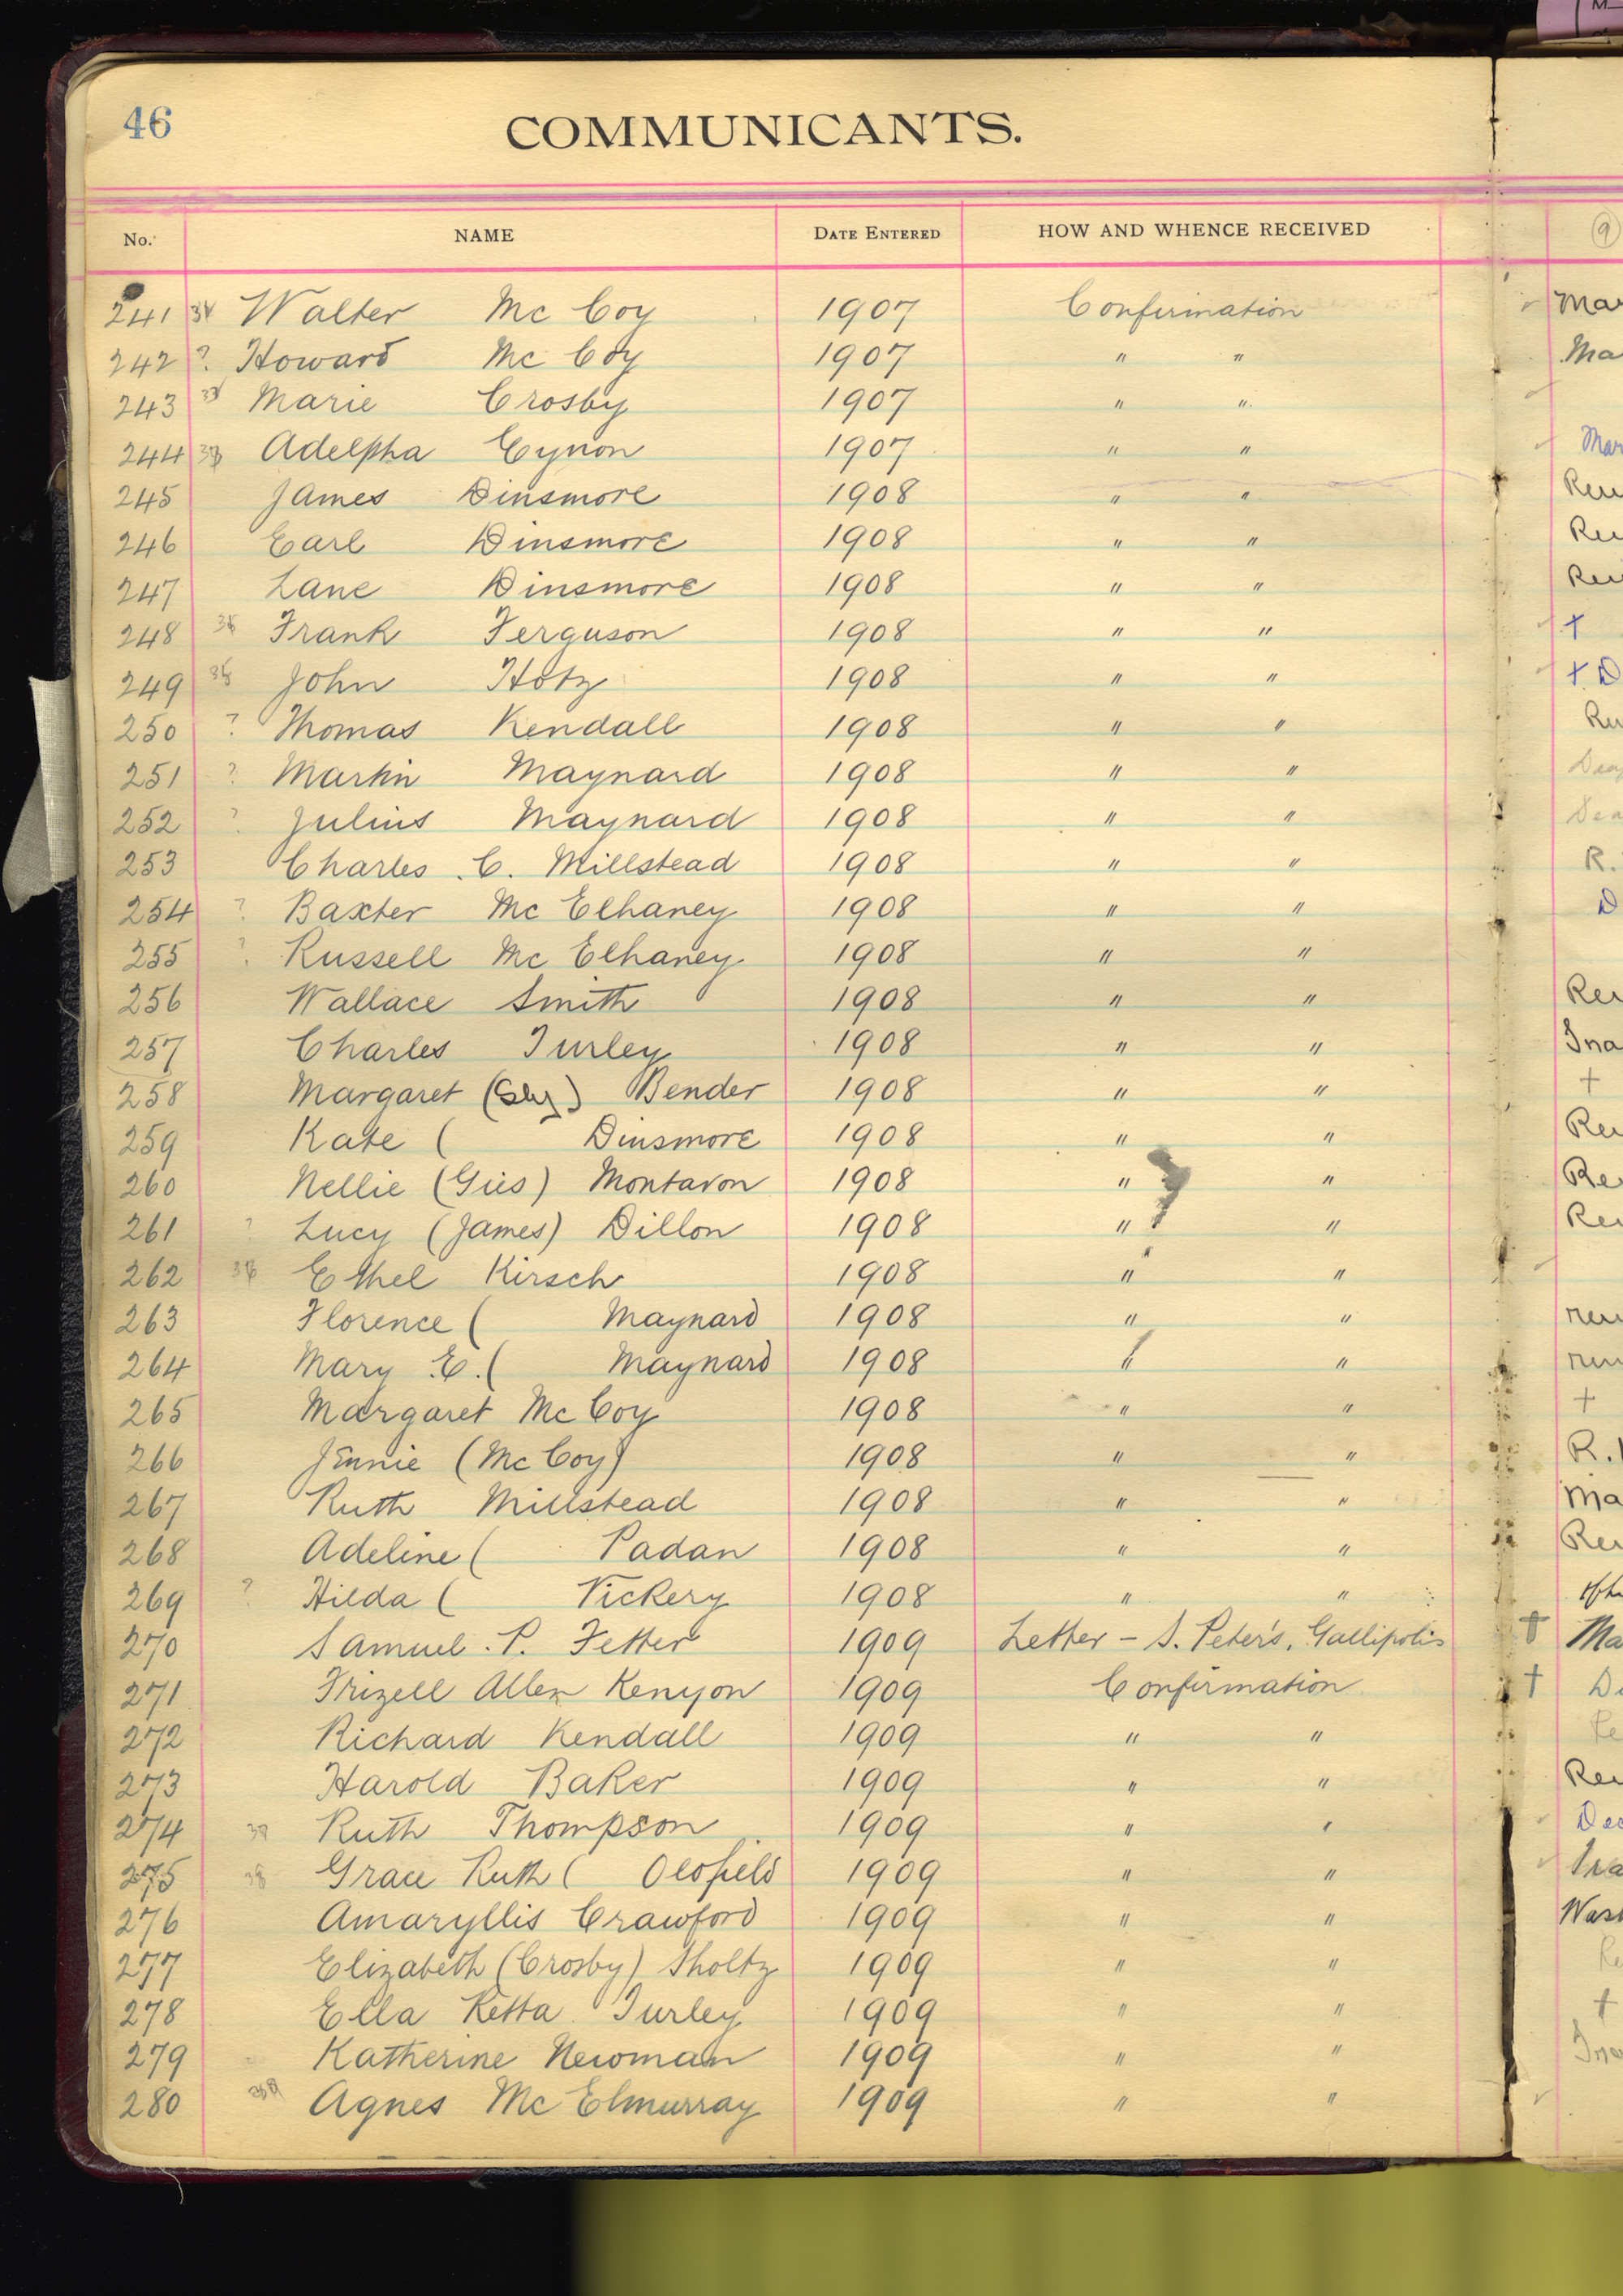 46
COMMUNICANTS.
No. NAME DATE ENTERED HOW AND WHENCE RECEIVED
241 Walter Mc Coy 1907 Confirmation
242 ? Howard Mc Coy 1907 " "
243 Marie Crosby 1907 " "
244 Adelpha Cynon 1907 " "
245 James Dinsmore 1908 " "
246 Earl Dinsmore 1908 " "
247 Lane Dinsmore 1908 " "
248 38 Frank Ferguson 1908 " "
249 38 John Hotz 1908 " "
250 ? Thomas Kendall 1908 " "
251 ? Martin Maynard 1908 " "
252 ? Julius Maynard 1908 " "
253 Charles C. Millstead 1908 " "
254 ? Baxter Mc Elhaney 1908 " "
255 ? Russell Mc Elhaney 1908 " "
256 Wallace Smith 1908 " "
257 Charles Turley 1908 " "
258 Margaret (Sly) Bender 1908 " "
259 Kate ( Dinsmore 1908 " "
260 Nellie (Gies) Montavon 1908 " "
261 ? Lucy (James) Dillon 1908 " "
262 38 Ethel Kirsch 1908 " "
263 Florence ( Maynard 1908 " "
264 Mary E. ( Maynard 1908 " "
265 Margaret Mc Coy 1908 " "
266 Jennie (Mc Coy) 1908 " "
267 Ruth Millstead 1908 " "
268 Adeline ( Padan 1908 " "
269 ? Hilda ( Vickery 1908 " "
270 Samuel P. Fetter 1909 Letter – S. Peter's, Gallipolis
271 Frizell Allen Kenyon 1909 Confirmation
272 Richard Kendall 1909 " "
273 Harold Baker 1909 " "
274 39 Ruth Thompson 1909 " "
275 38 Grace Ruth ( Oldfield 1909 " "
276 Amaryllis Crawford 1909 " "
277 Elizabeth (Crosby) Sholtz 1909 " "
278 Ella Retta Turley 1909 " "
279 Katherine Newman 1909 " "
280 Agnes Mc Elmurray 1909 " "